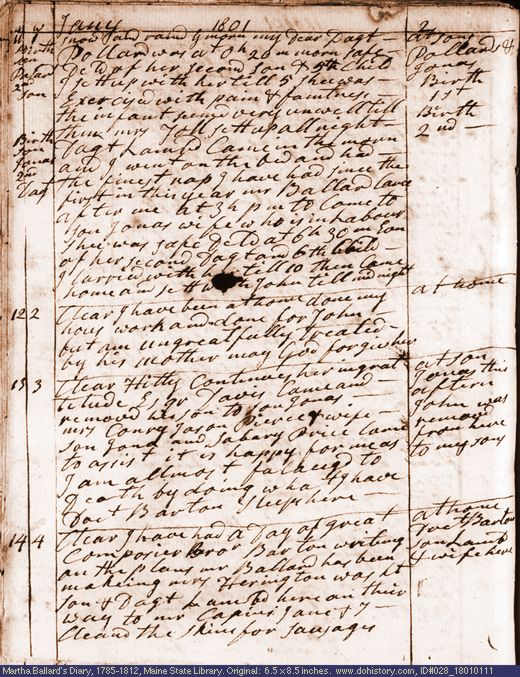 Jany 1801 2
11 g snow Cold raind y morn my Dear Dagt
Pollard was at 0h 20 m morn safe
Deld of her second Son & 5th Child
I sett up with her till 5 shee was
Exercisd with pain & faintnes
the infant seemd very unwell till
then. mrs Toll sett up all night
Dagt Lambd Came in the morn
and I went on the bed and had
the first nap I have had since the
first in this year. mr Ballard Came
after me at 3h pm to Come to
son Jonas wife who is in Labour
shee was safe Deld at 6h 30 m
of her second Dagt and 6th Child
I tarried with her till 10 then Came
home and sett with John till midnight
Birth
son
Polard
2nd
Son
Birth
son
Jonas
2nd
Dagt
at sons
Pollards &
Jonas
Birth
1st
Birth
2nd
12 2 Clear I have been at home done my
hous work and done for John
but am ungreatfully treated
by his mother may God forgive her
at home
13 3 Clear Hitty Continues her ingrat
titude Esqr Davis Came and
removd her son to son Jonas
mrs Conry Jason Pierce & wife
son Jona and Sabary Price Came
to assist it is happy for me as
I am allmost fatagud to
Death by doing what I have
Doct Barton sleeps here
at son
Jonas this
aftern
John was
removd
from here
to my sons
14 4 Clear I have had a Day of great
Composier Doctor Barton writing
on the Plans mr Ballard has been
makeing mrs Herington was at
son & Dagt Lambd here on their
way to mr Capins Jane & I
Cleand the skins for sausages
at home
Doct Barton
son Lambd
& wife here
Martha Ballard's Diary, 1785-1812, Maine State Library. Original: 6.5 x 8.5 inches. www.dohistory.com, ID#028_18010111